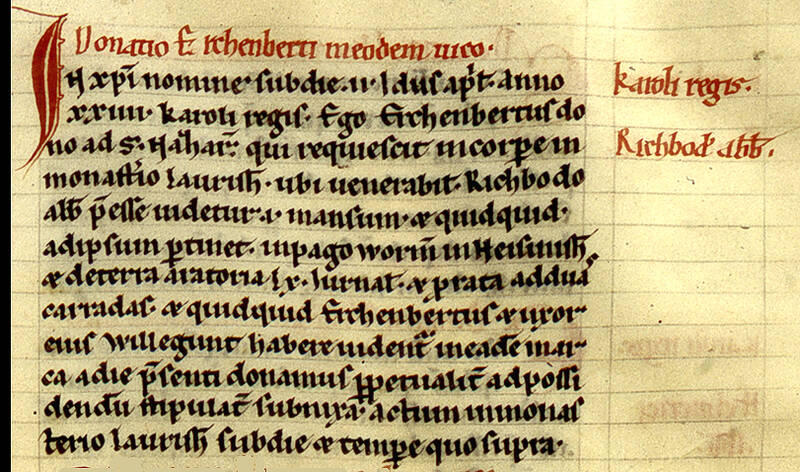 Donatio Erchenberti in eodem uico.
In xpi nomine. sub die. ii. idus apr̄l. anno
xxiiii. karoli regis. Ego Erchenbertus do
no ad s̄. Naȝhar̄. qui requiescit in corpore in
monast̄io laurish̄. ubi uenerabil̄. Richbodo
abb̄ p̄esse uidetur. i. mansum. & quidquid.
ad ipsum ptinet. in pago worm̄ in Heisinish̄.
& de terra aratoria lx. iurnal̄. & prata ad duas
carradas. & quidquid Erchenbertus & uxor
eius Willegunt habere uident̄ in eadē mar
ca a die p̄senti donamus ppetualit̄ ad possi
dendū stipulat̄ subnixa. actum in monas
terio laurish̄ sub die & tempe quo supra.
karoli regis.
Richbod̄ abb̄.